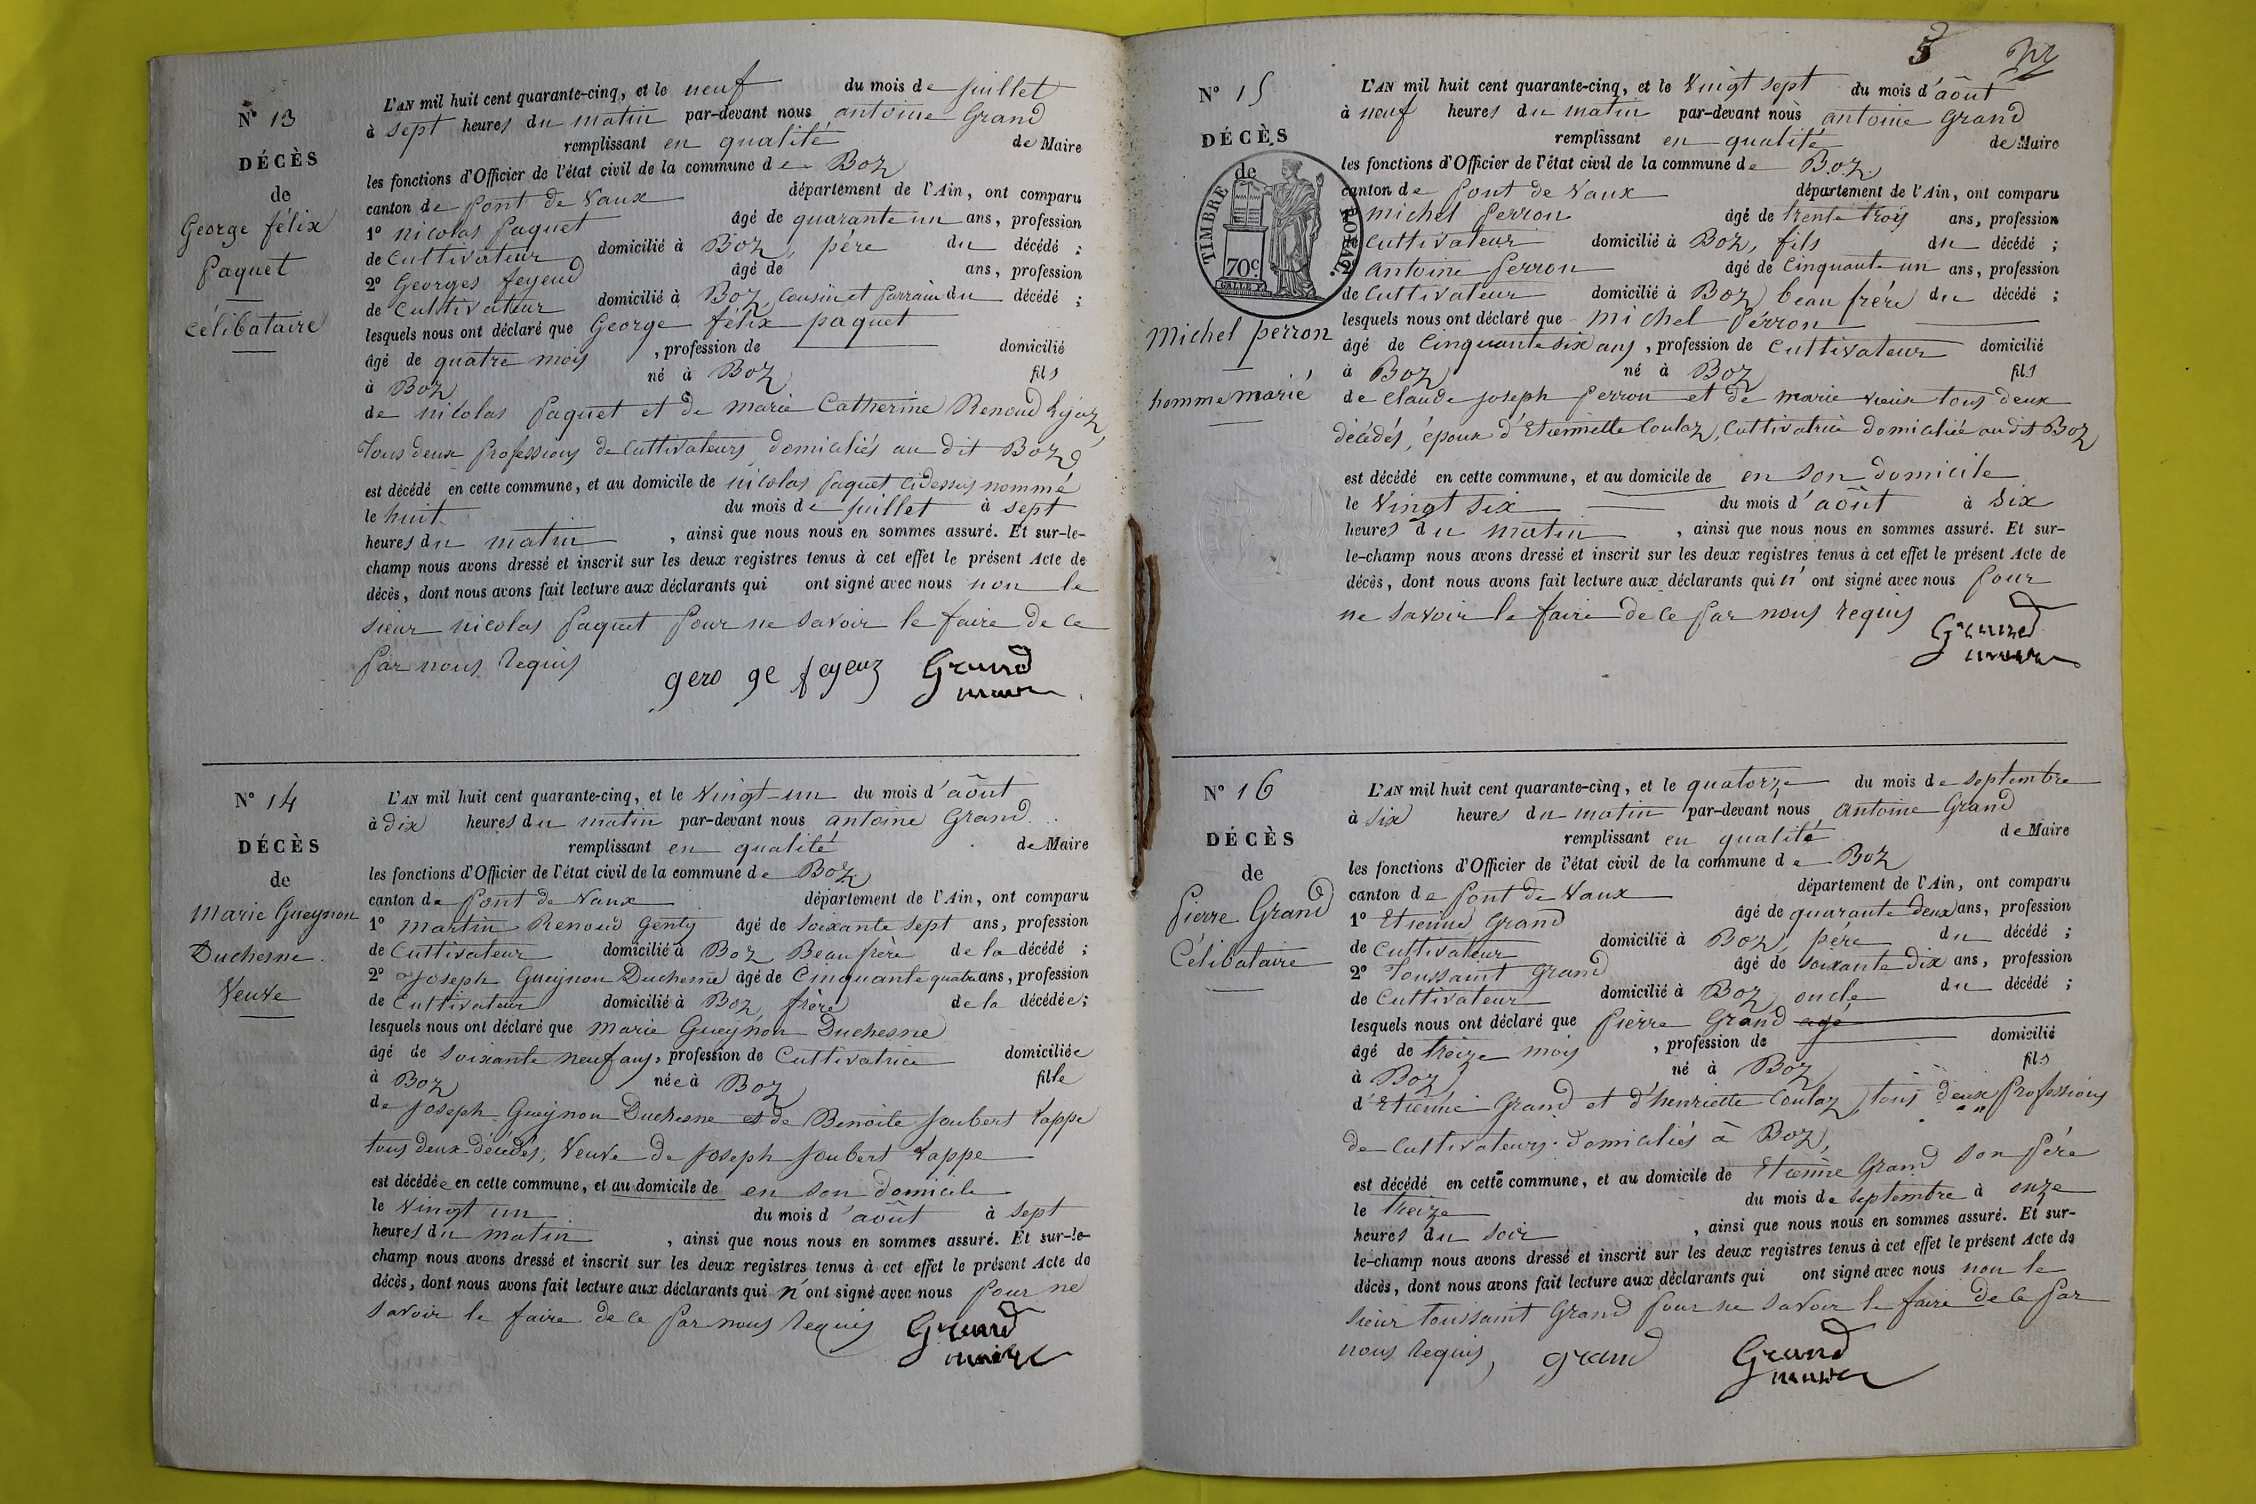 N° 13
DÉCÈS
de
George félix
paquet
célibataire
L'AN mil huit cent quarante-cinq, et le neuf du mois de juillet
à sept heures du matin par-devant nous antoine Grand
remplissant en qualité de Maire
les fonctions d'Officier de l'état civil de la commune de Boz
canton de pont de Vaux département de l'Ain, ont comparu
1° nicolas paquet âgé de quarante un ans, profession
de Cultivateur domicilié à Boz, pére du décédé ;
2° Georges feyeud âgé de ans, profession
de Cultivateur domicilié à Boz, Cousin et parrain du décédé ;
lesquels nous ont déclaré que George félix paquet
âgé de quatre mois , profession de domicilié
à Boz né à Boz fils
de nicolas paquet et de marie Catherine Renoud Lyaz
tous deux professions de Cultivateurs domiciliés au dit Boz
est décédé en cette commune, et au domicile de nicolas paquet cidessus nommé
le huit du mois de juillet à sept
heures du matin , ainsi que nous nous en sommes assuré. Et sur-le-
champ nous avons dressé et inscrit sur les deux registres tenus à cet effet le présent Acte de
décès, dont nous avons fait lecture aux déclarants qui ont signé avec nous non le
sieur nicolas paquet pour ne savoir le faire de ce
par nous requis
gero ge feyeuz Grand
maire
N° 14
DÉCÈS
de
Marie Gueynon
Duchesne
Veuve
L'AN mil huit cent quarante-cinq, et le Vingt-un du mois d'août
à dix heures du matin par-devant nous antoine Grand
remplissant en qualité de Maire
les fonctions d'Officier de l'état civil de la commune de Boz
canton de pont de Vaux département de l'Ain, ont comparu
1° martin Renoud Genty âgé de soixante sept ans, profession
de Cultivateur domicilié à Boz Beau frère de la décédé ;
2° Joseph Gueynon Duchesne âgé de Cinquante quatre ans, profession
de Cultivateur domicilié à Boz, frère de la décédée ;
lesquels nous ont déclaré que Marie Gueynon Duchesne
âgé de soixante neuf ans, profession de Cultivatrice domiciliée
à Boz née à Boz fille
de Joseph Gueynon Duchesne et de Benoite Joubert Lappe
tous deux décédés, Veuve de Joseph Joubert Lappe
est décédée en cette commune, et au domicile de en son domicile
le Vingt un du mois d'août à sept
heures du matin , ainsi que nous nous en sommes assuré. Et sur-le-
champ nous avons dressé et inscrit sur les deux registres tenus à cet effet le présent Acte de
décès, dont nous avons fait lecture aux déclarants qui n'ont signé avec nous pour ne
savoir le faire de ce par nous requis Grand
maire
5
N° 15
DÉCÈS
de
TIMBRE ROYAL.
70c
Michel perron
homme marié
L'AN mil huit cent quarante-cinq, et le Vingt sept du mois d'août
à neuf heures du matin par-devant nous antoine Grand
remplissant en qualité de Maire
les fonctions d'Officier de l'état civil de la commune de Boz
canton de pont de Vaux département de l'Ain, ont comparu
michel perron âgé de trente trois ans, profession
Cultivateur domicilié à Boz, fils du décédé ;
2° antoine perron âgé de Cinquante un ans, profession
de Cultivateur domicilié à Boz beau frére du décédé ;
lesquels nous ont déclaré que michel pérron
âgé de Cinquante six ans, profession de Cultivateur domicilié
à Boz né à Boz fils
de Claude joseph perron et de marie vieux tous deux
décédés, époux d'Etiennette Coulaz, Cultivatrice domiciliée au dit Boz
est décédé en cette commune, et au domicile de en son domicile
le Vingt six du mois d'août à six
heures du matin , ainsi que nous nous en sommes assuré. Et sur-
le-champ nous avons dressé et inscrit sur les deux registres tenus à cet effet le présent Acte de
décès, dont nous avons fait lecture aux déclarants qui n'ont signé avec nous pour
ne savoir le faire de ce par nous requis Grand
maire
N° 16
DÉCÈS
de
pierre Grand
Célibataire
L'AN mil huit cent quarante-cinq, et le quatorze du mois de septembre
à six heures du matin par-devant nous Antoine Grand
remplissant en qualité de Maire
les fonctions d'Officier de l'état civil de la commune de Boz
canton de pont de Vaux département de l'Ain, ont comparu
1° Etienne Grand âgé de quarante deux ans, profession
de Cultivateur domicilié à Boz, pére du décédé ;
2° Toussaint Grand âgé de soixante dix ans, profession
de Cultivateur domicilié à Boz, oncle du décédé ;
lesquels nous ont déclaré que pierre Grand agé
âgé de treize mois , profession de domicilié
à Boz né à Boz fils
d'Etienne Grand et d'henriette Coulaz, tous deux professions
de Cultivateurs domiciliés à Boz,
est décédé en cette commune, et au domicile de Etienne Grand son pére
le treize du mois de septembre à onze
heures du soir , ainsi que nous nous en sommes assuré. Et sur-
le-champ nous avons dressé et inscrit sur les deux registres tenus à cet effet le présent Acte de
décès, dont nous avons fait lecture aux déclarants qui ont signé avec nous non le
sieur toussaint Grand pour ne savoir le faire de ce par
nous requis, grand Grand
maire